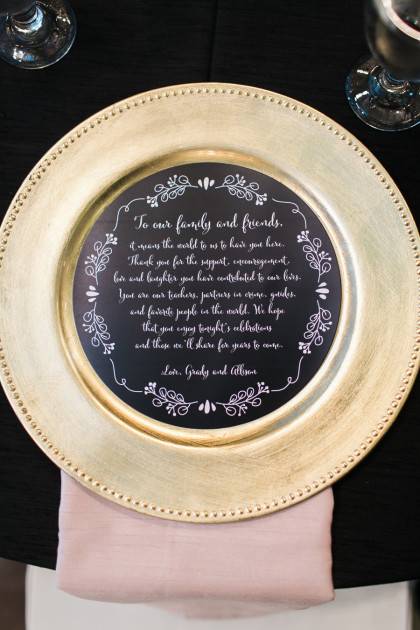 To our family and friends,
it means the world to us to have you here.
Thank you for the support, encouragement,
love and laughter you have contributed to our lives.
You are our teachers, partners in crime, guides,
and favorite people in the world. We hope
that you enjoy tonight's celebrations
and those we'll share for years to come.
Love, Grady and Allison